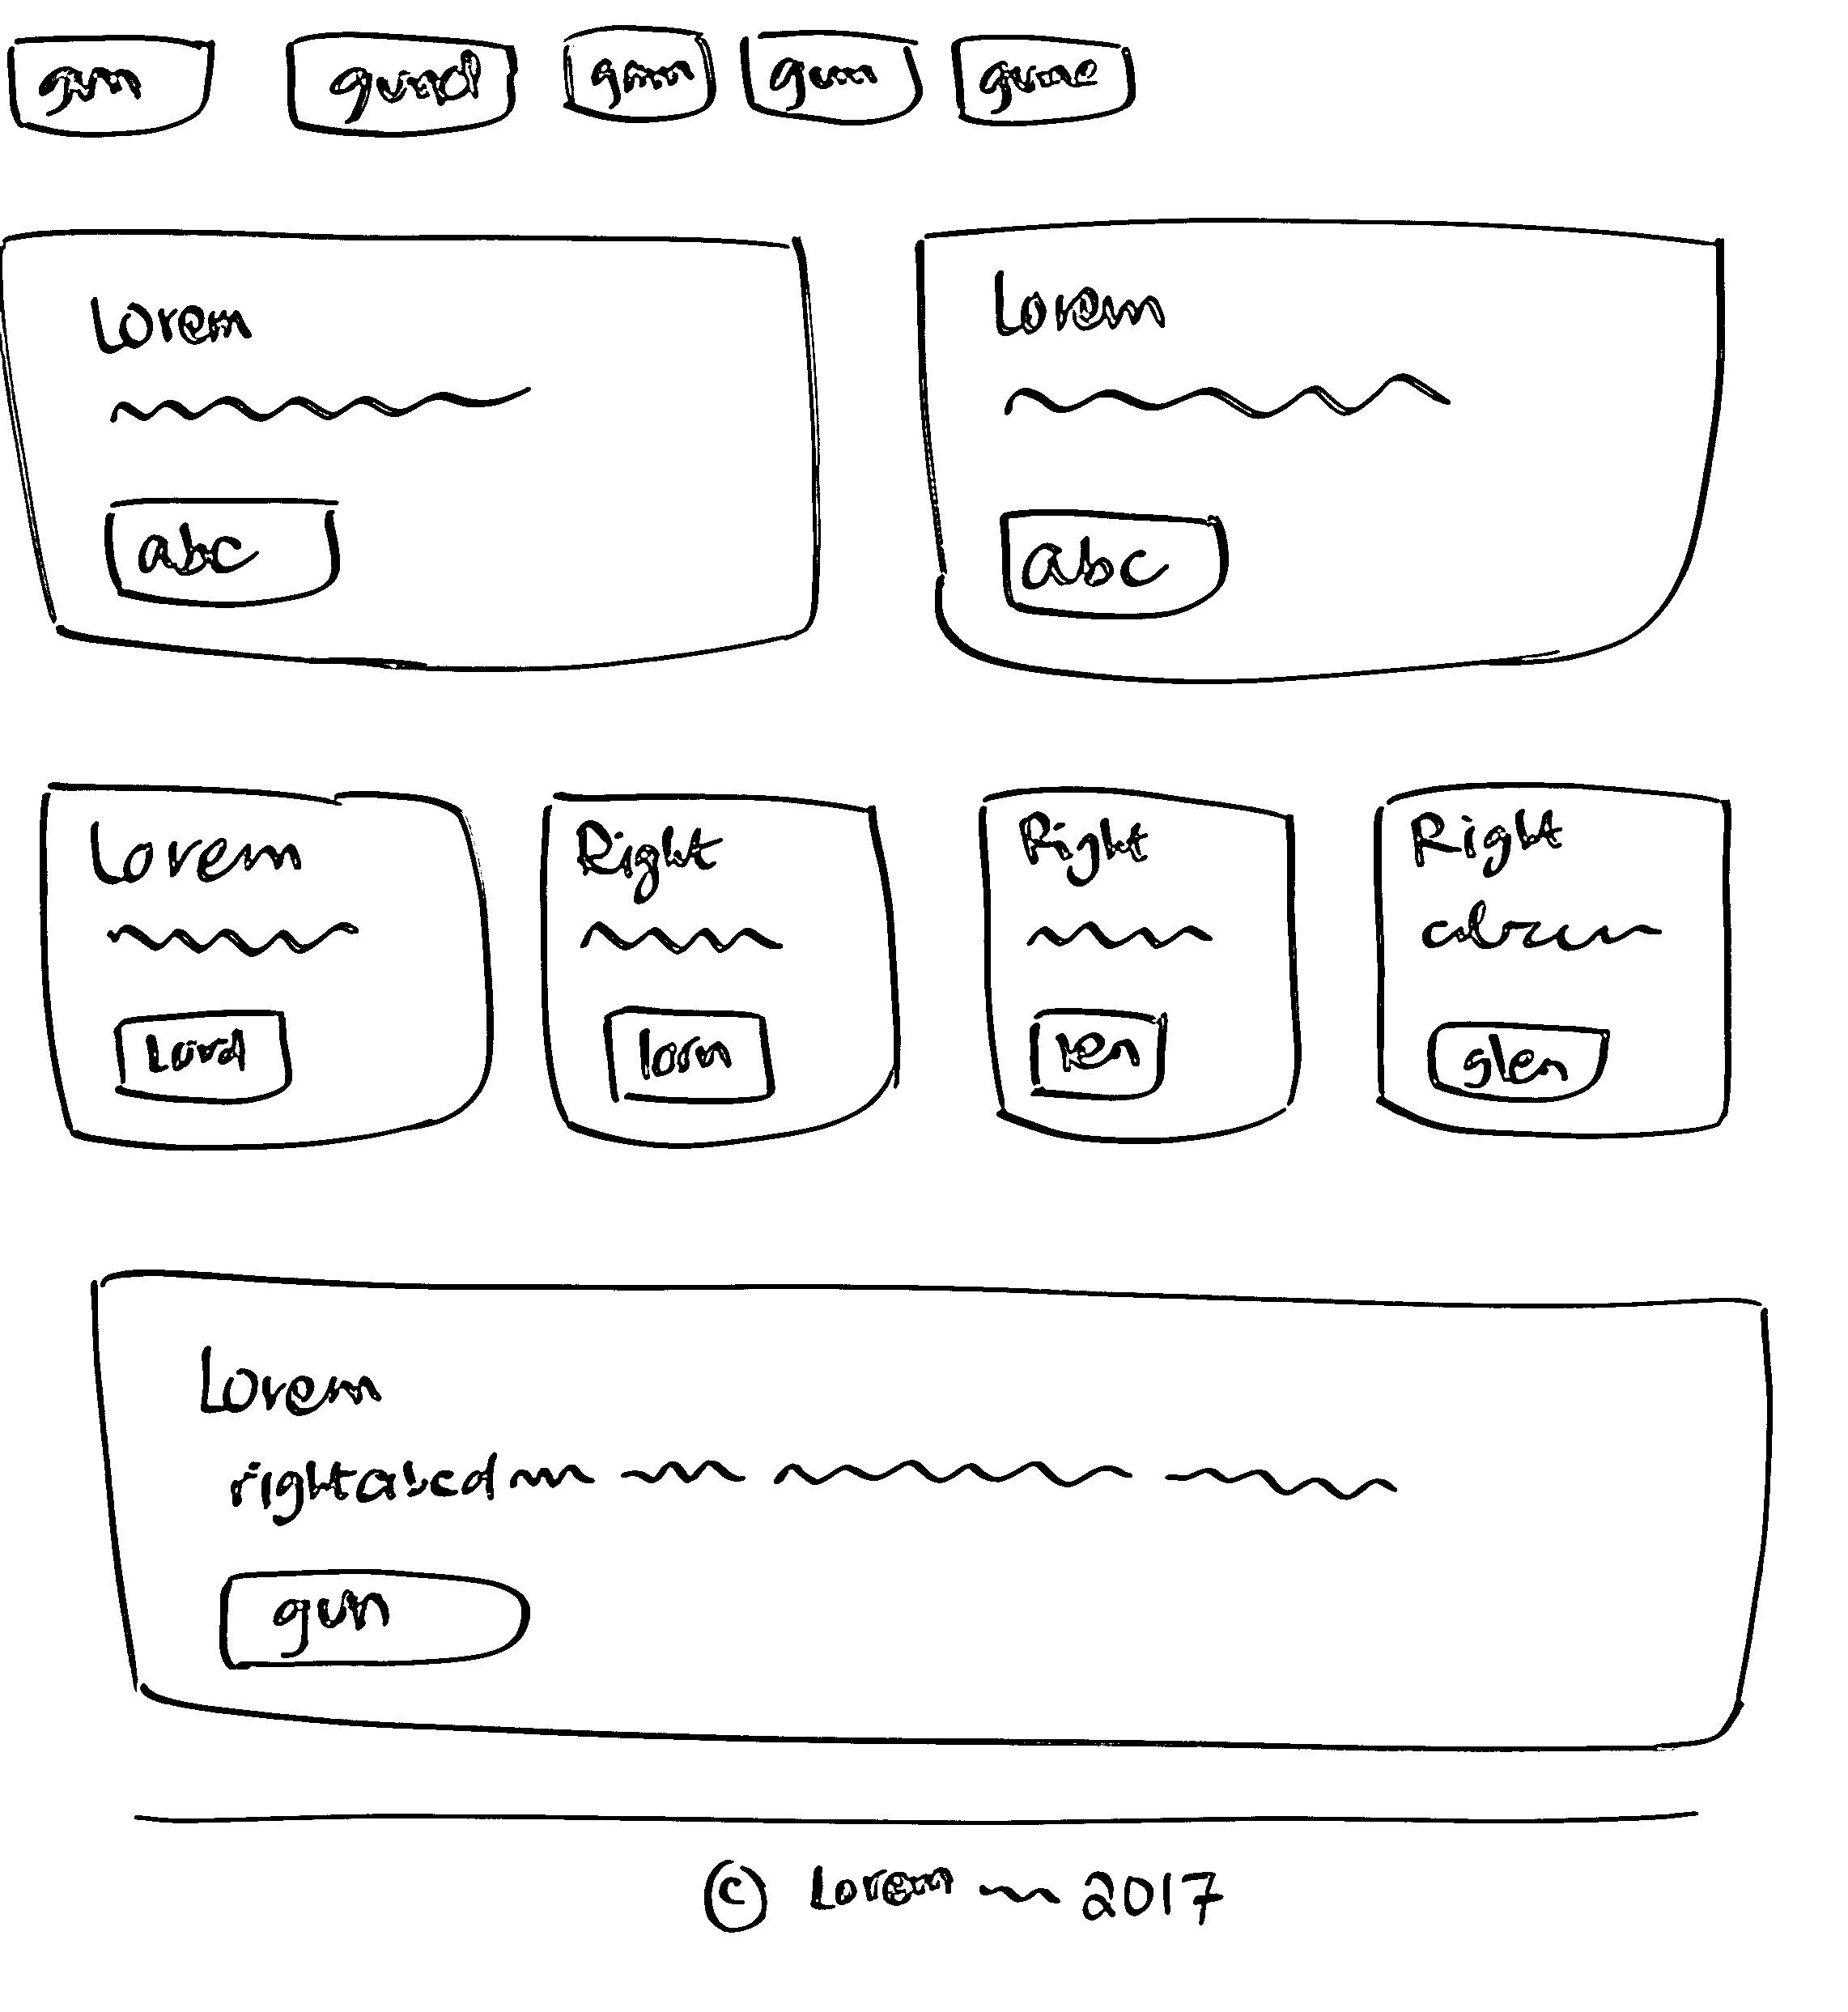 gun gund gmm gum gume
Lorem
abc
Lorem
abc
Lorem
Lord
Right
lorn
Right
ren
Right
slen
Lorem
rightabcd
gun
© Lorem 2017